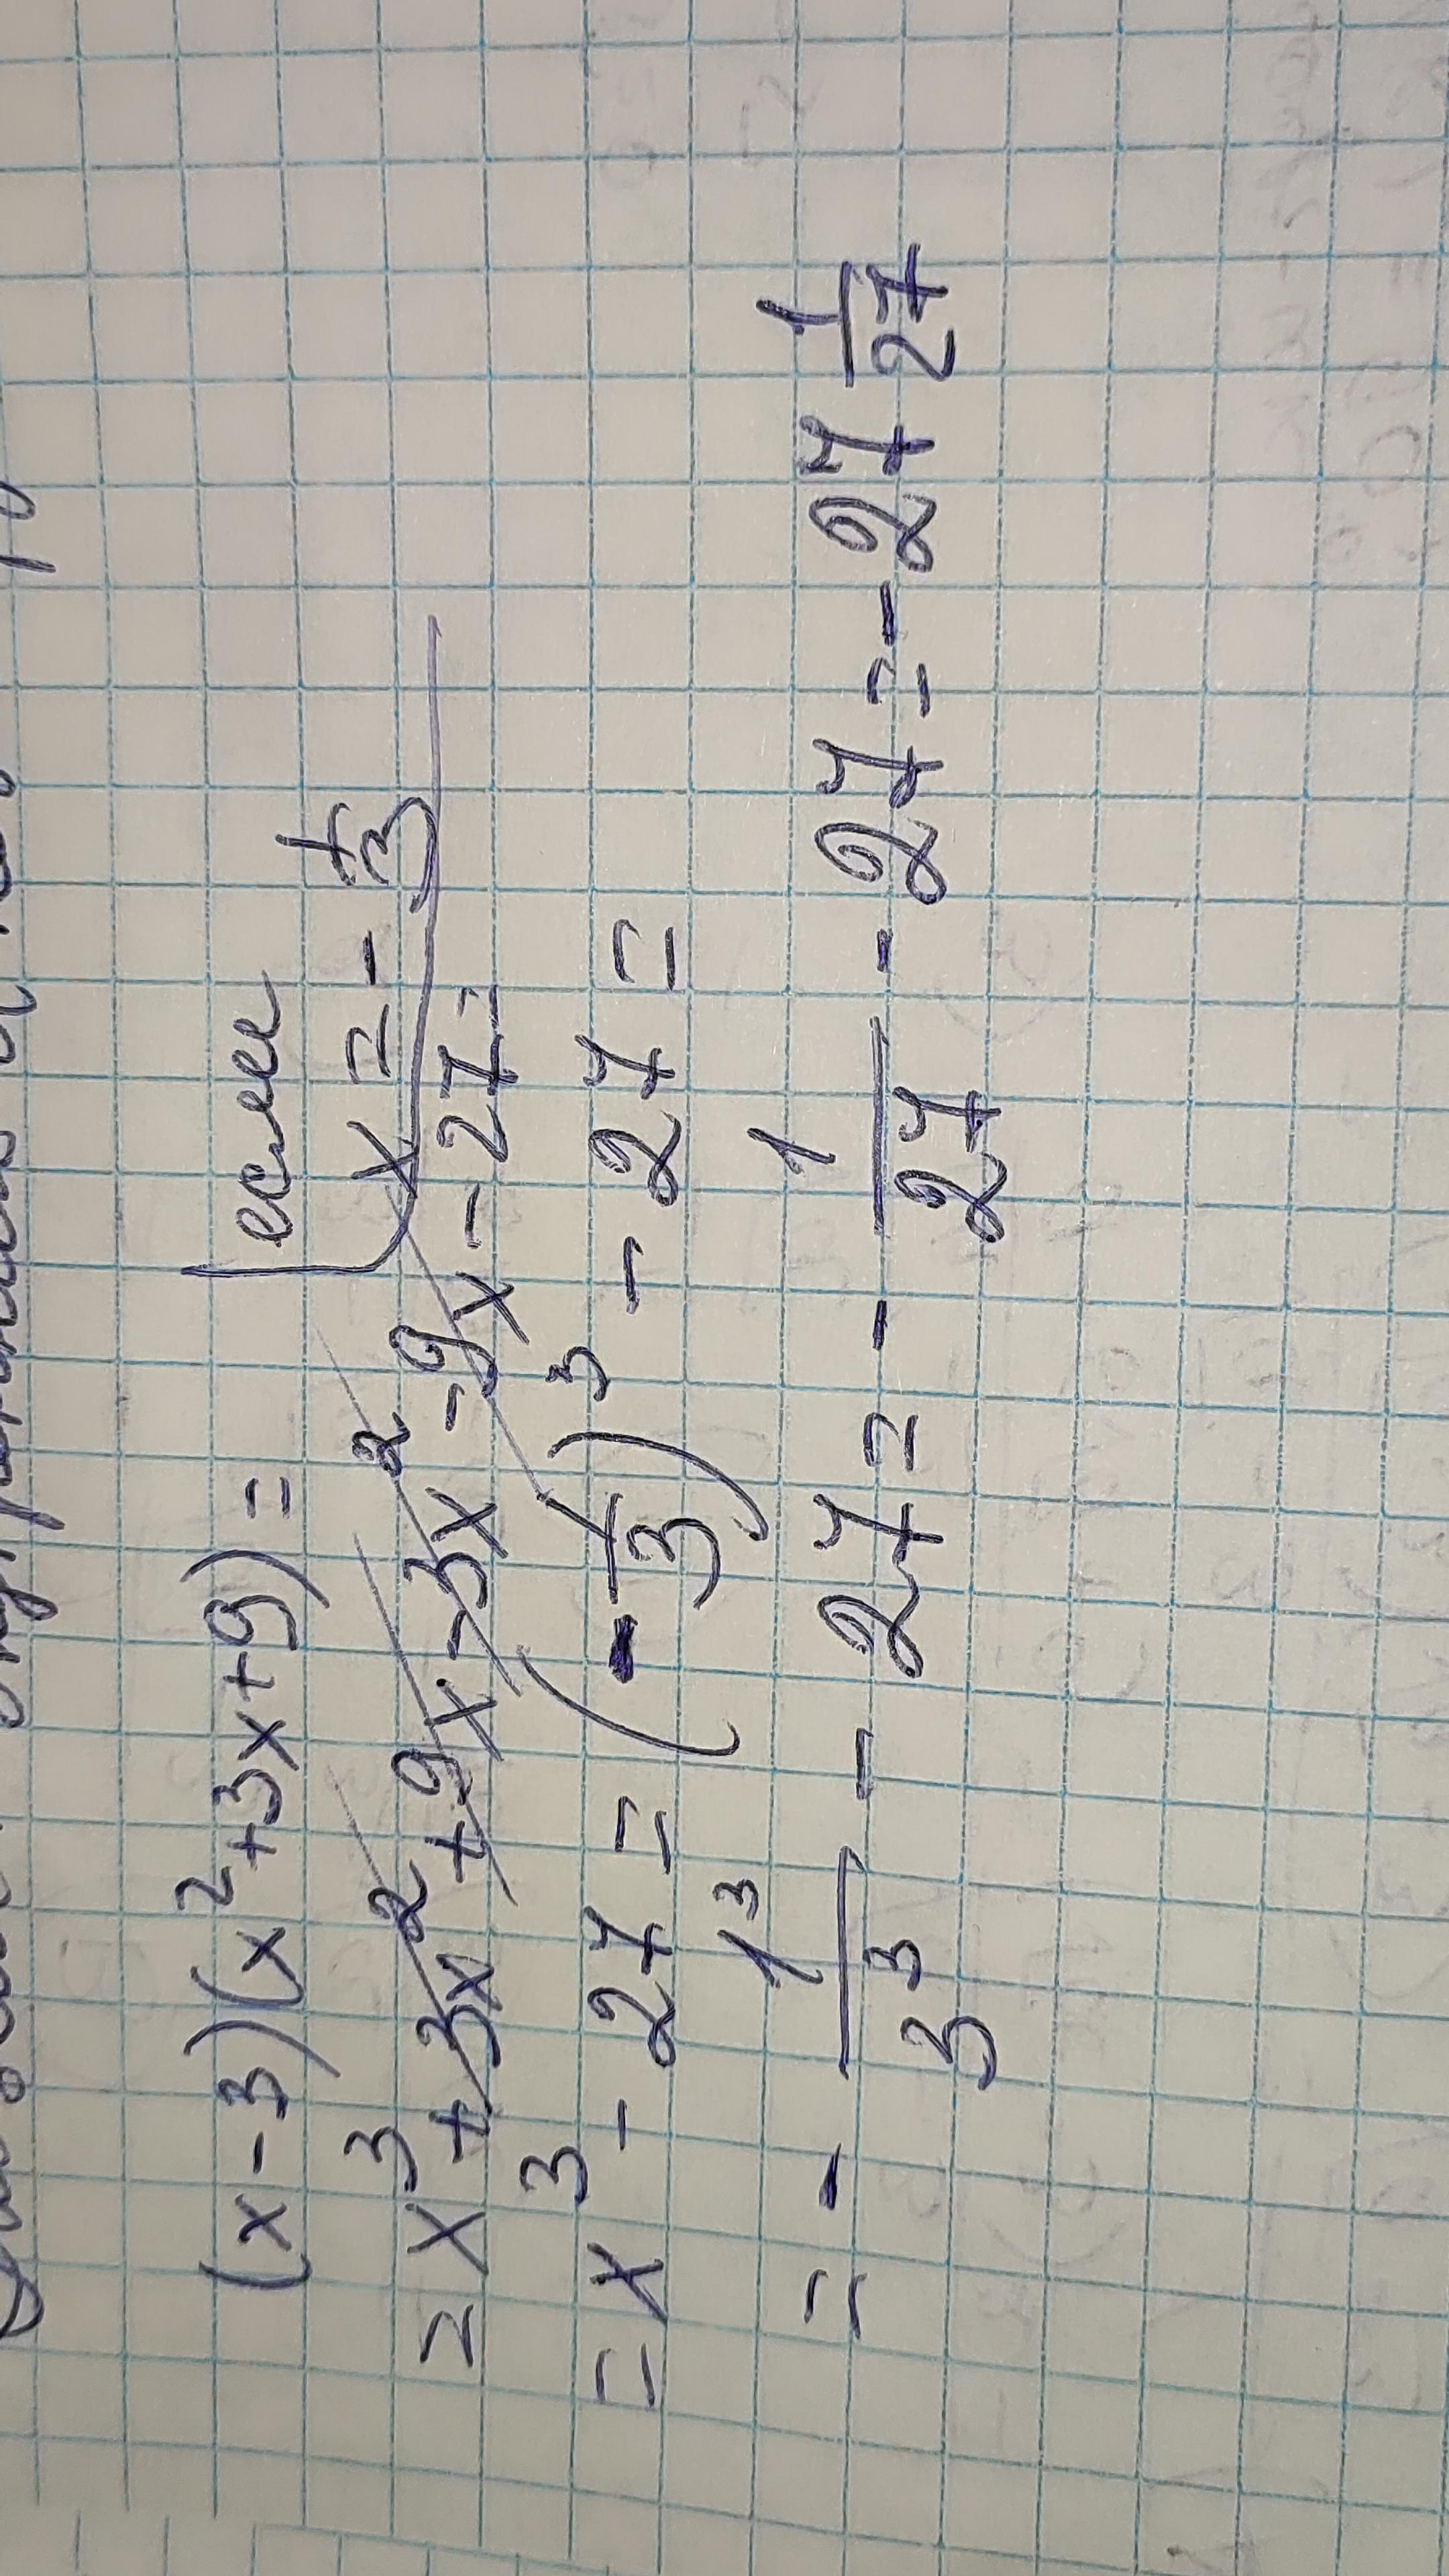 (x-3)(x²+3x+9)=
если
x=-1/3
=x³+3x²+9x-3x²-9x-27=
=x³-27=(-1/3)³-27=
=-1³/3³-27=-1/27-27=-27 1/27